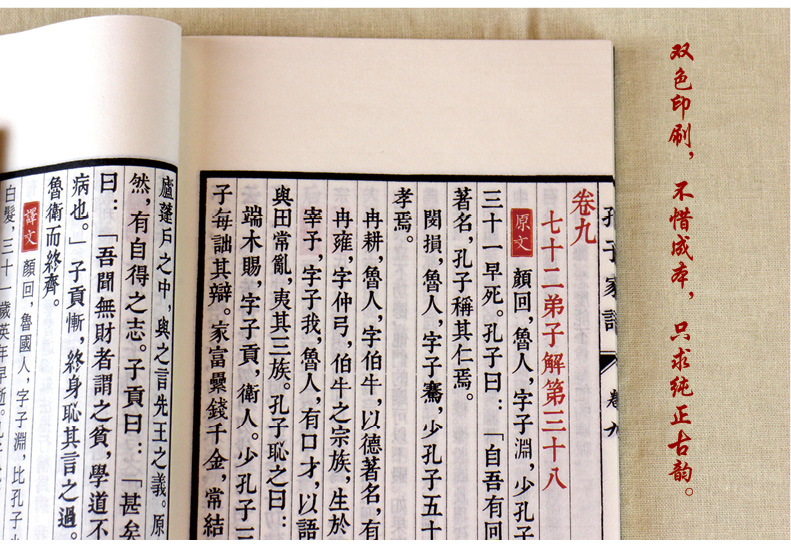 双色印刷，不惜成本，只求纯正古韵。
孔子家語
卷九
卷九
七十二弟子解第三十八
原文 顏回，魯人，字子淵，少孔子
三十一早死。孔子曰：「自吾有回
著名，孔子稱其仁焉。
閔損，魯人，字子騫，少孔子五十
孝焉。
冉耕，魯人，字伯牛，以德著名，有
冉雍，字仲弓，伯牛之宗族，生於
宰予，字子我，魯人，有口才，以語
與田常亂，夷其三族。孔子恥之曰：
端木賜，字子貢，衛人。少孔子三
子每詘其辯。家富纍錢千金，常結
廬蓬戶之中，與之言先王之義。原
然，有自得之志。子貢曰：「甚矣
曰：「吾聞無財者謂之貧，學道不
病也。」子貢慚，終身恥其言之過。
魯衛而終齊。
譯文 顏回，魯國人，字子淵，比孔子
白髮，三十一歲英年早逝。